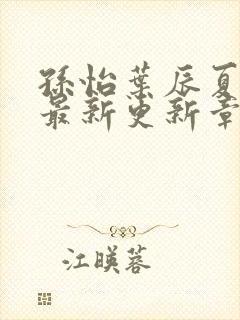 孫怡葉辰夏
最新更新章
江暎蓉